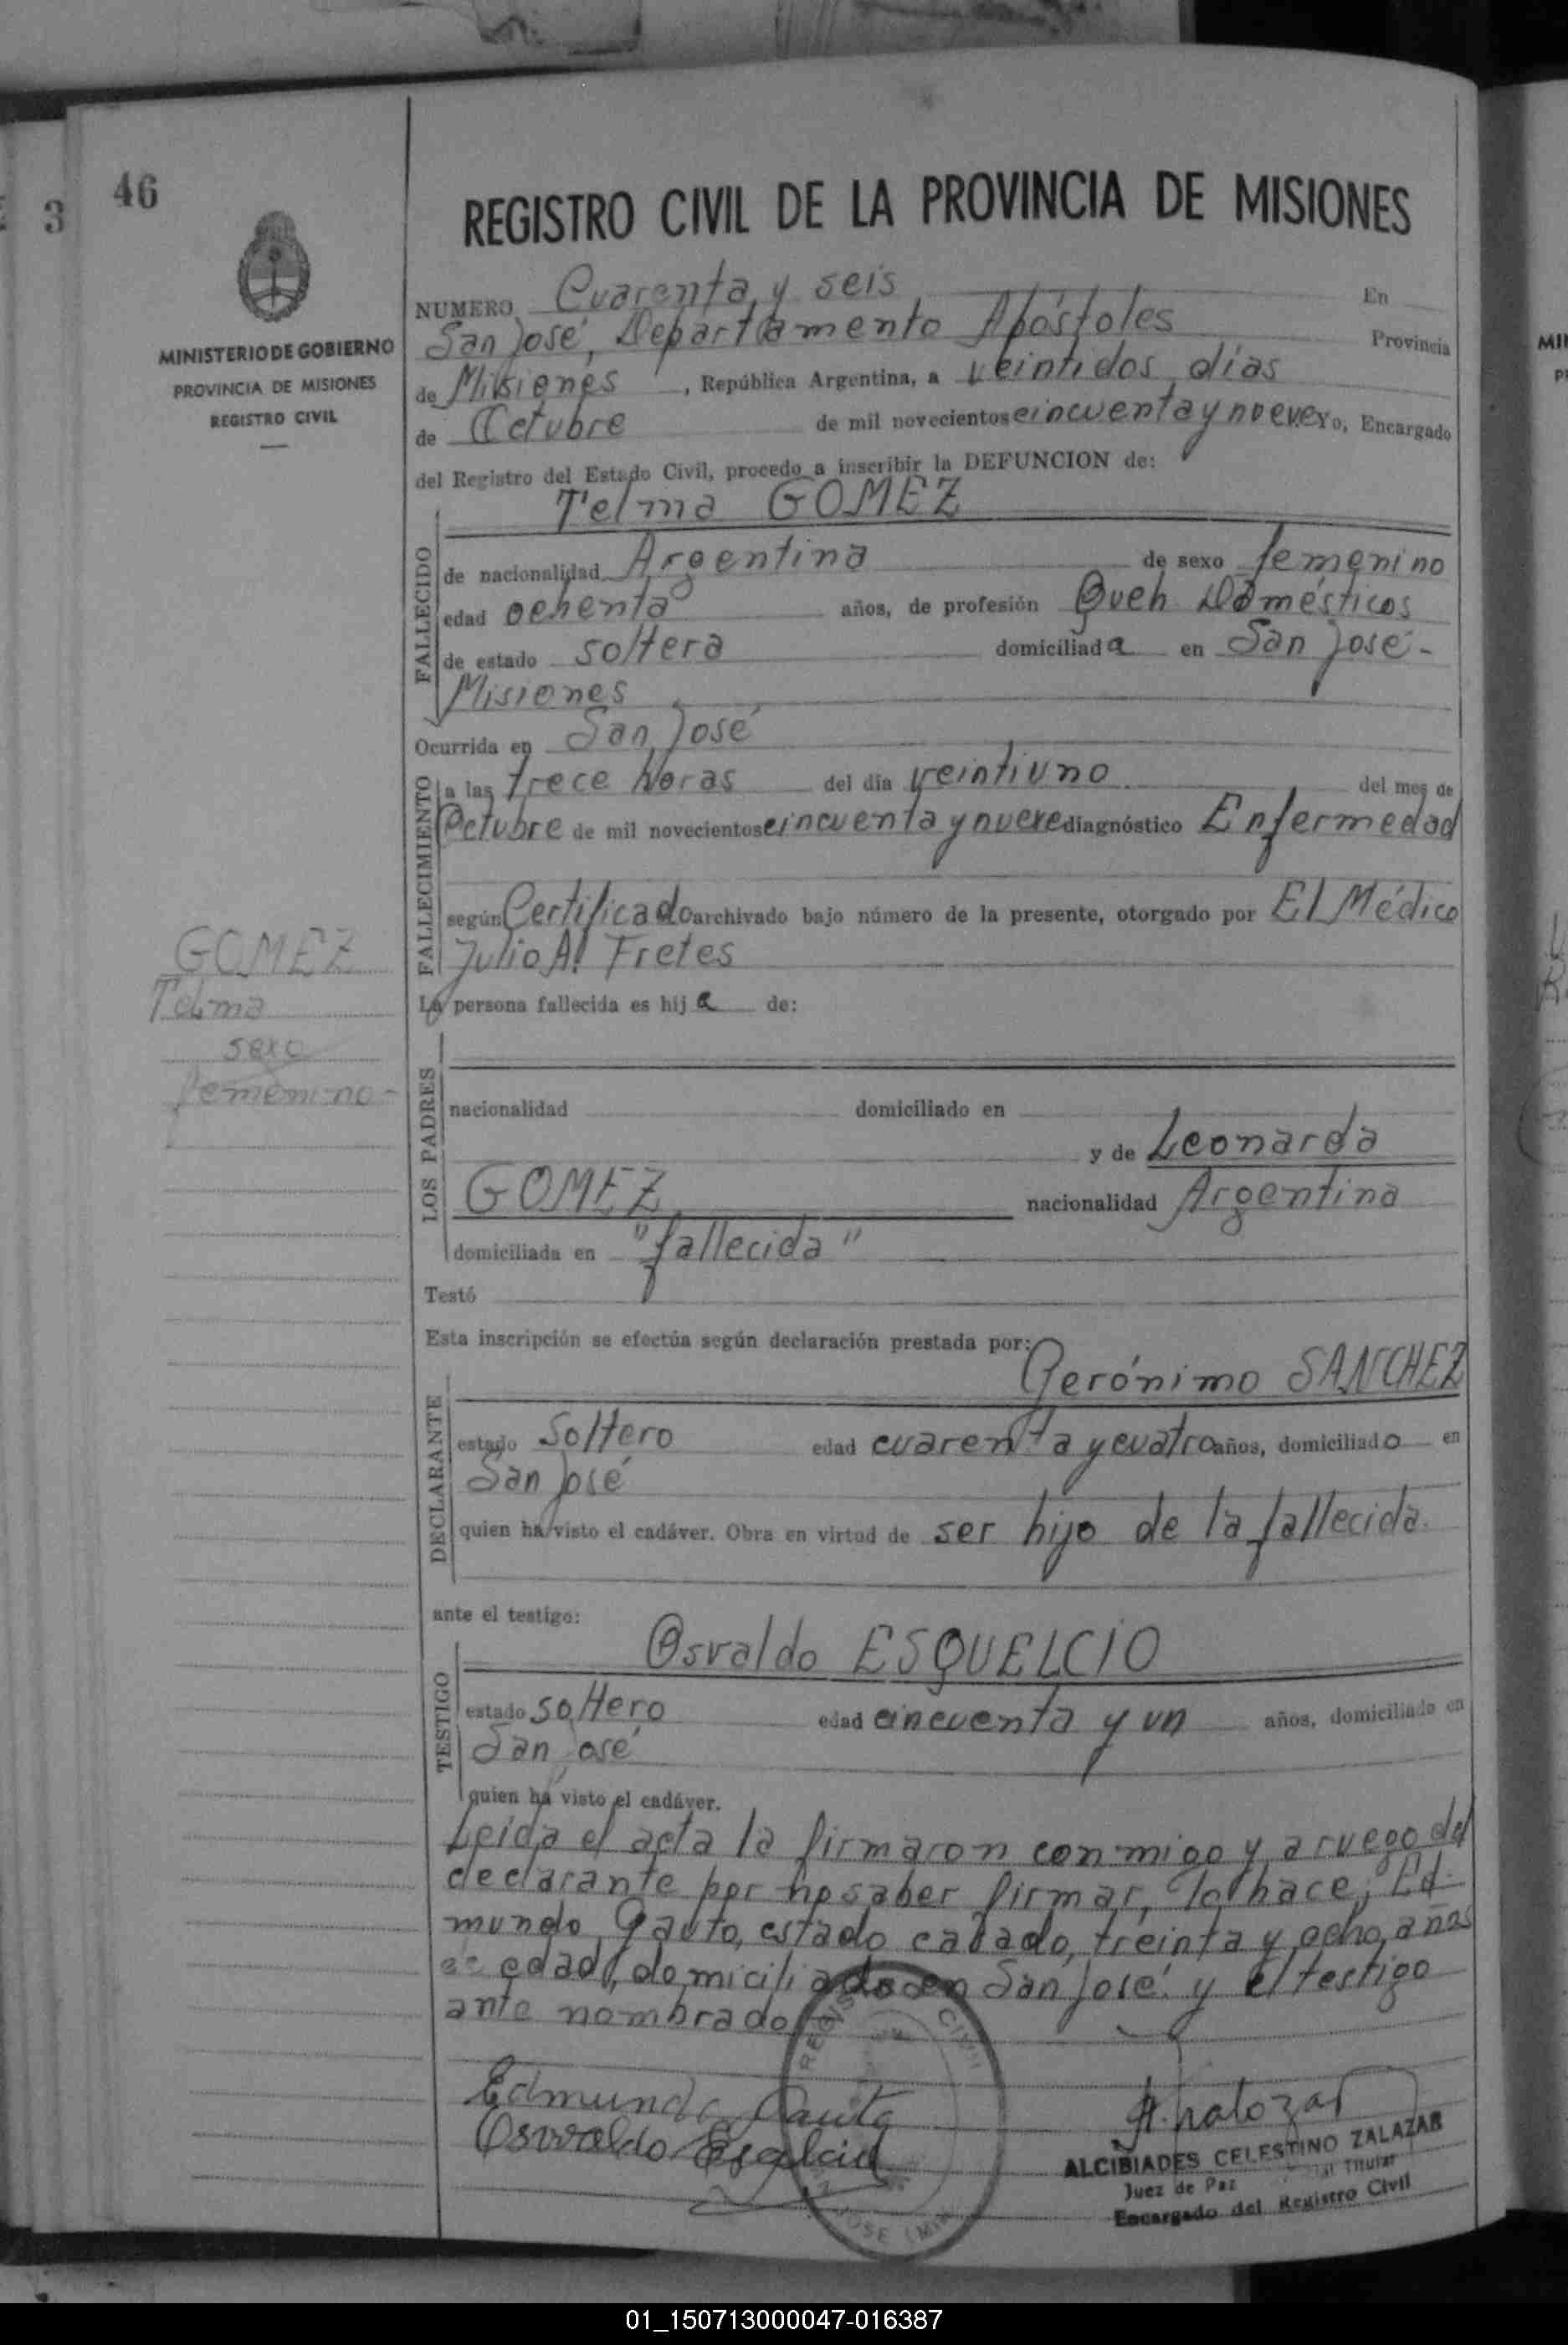 46
3
REGISTRO CIVIL DE LA PROVINCIA DE MISIONES
MINISTERIO DE GOBIERNO
PROVINCIA DE MISIONES
REGISTRO CIVIL
NUMERO Cuarenta y seis En
San José, Departamento Apóstoles Provincia
de Misiones, República Argentina, a veintidos días
de Octubre de mil novecientos cincuenta y nueve Yo, Encargado
del Registro del Estado Civil, procedo a inscribir la DEFUNCION de:
Telma GOMEZ
FALLECIDO
de nacionalidad Argentina de sexo femenino
edad ochenta años, de profesión Queh Domésticos
de estado soltera domiciliada en San José-
Misiones
Ocurrida en San José
FALLECIMIENTO
a las trece horas del día veintiuno del mes de
Octubre de mil novecientos cincuenta y nueve diagnóstico Enfermedad
según Certificado archivado bajo número de la presente, otorgado por El Médico
Julio A. Fretes
La persona fallecida es hija de:
GOMEZ
Telma
sexo
femenino-
LOS PADRES
nacionalidad domiciliado en
y de Leonarda
GOMEZ nacionalidad Argentina
domiciliada en "fallecida"
Testó
Esta inscripción se efectúa según declaración prestada por:
Gerónimo SANCHEZ
DECLARANTE
estado soltero edad cuarenta y cuatro años, domiciliado en
San José
quien ha visto el cadáver. Obra en virtud de ser hijo de la fallecida.
ante el testigo:
Osvaldo ESQUELCIO
TESTIGO
estado soltero edad cincuenta y un años, domiciliado en
San José
quien ha visto el cadáver.
Leida el acta la firmaron conmigo y a ruego del
declarante por no saber firmar, lo hace, Ed-
mundo Gauto, estado casado, treinta y ocho años
de edad, domiciliado en San José y el testigo
ante nombrado
Edmundo Gauto
Osvaldo
ALCIBIADES CELESTINO ZALAZAR
Juez de Paz Titular
Encargado del Registro Civil
REGISTRO CIVIL
JOSE (Mnes
01_150713000047-016387